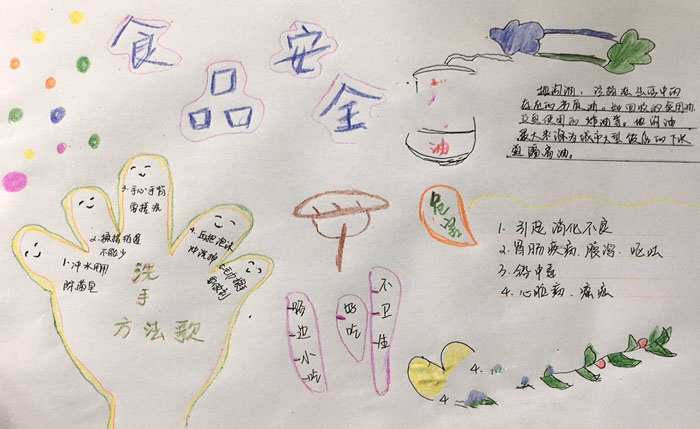 食品安全
地沟油，泛指在生活中的
存在的劣质油。如回收的食用油
反复使用的炸油等。地沟油
最大来源为城市大型饭店的下水
道隔离油。
油
危害
1. 引起消化不良
2. 胃肠疾病、腹泻、呕吐
3. 铅中毒
4. 心脏病、癌症
3. 手心手背
要搓洗
2.
不能少
4.
冲洗净
1. 冲水用
洗
手
方法歌
路边小吃
好吃
不卫生
4.
4.